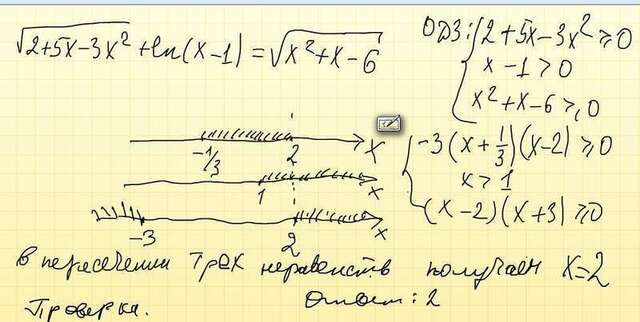 √(2+5x−3x²) + ln(x−1) = √(x²+x−6)
ОДЗ: { 2+5x−3x² ≥ 0
x−1 > 0
x²+x−6 ≥ 0
{ −3(x+1/3)(x−2) ≥ 0
x > 1
(x−2)(x+3) ≥ 0
−1/3 2 x
1 x
−3 2 x
в пересечении трех неравенств получаем x=2
Проверка. Ответ: 2